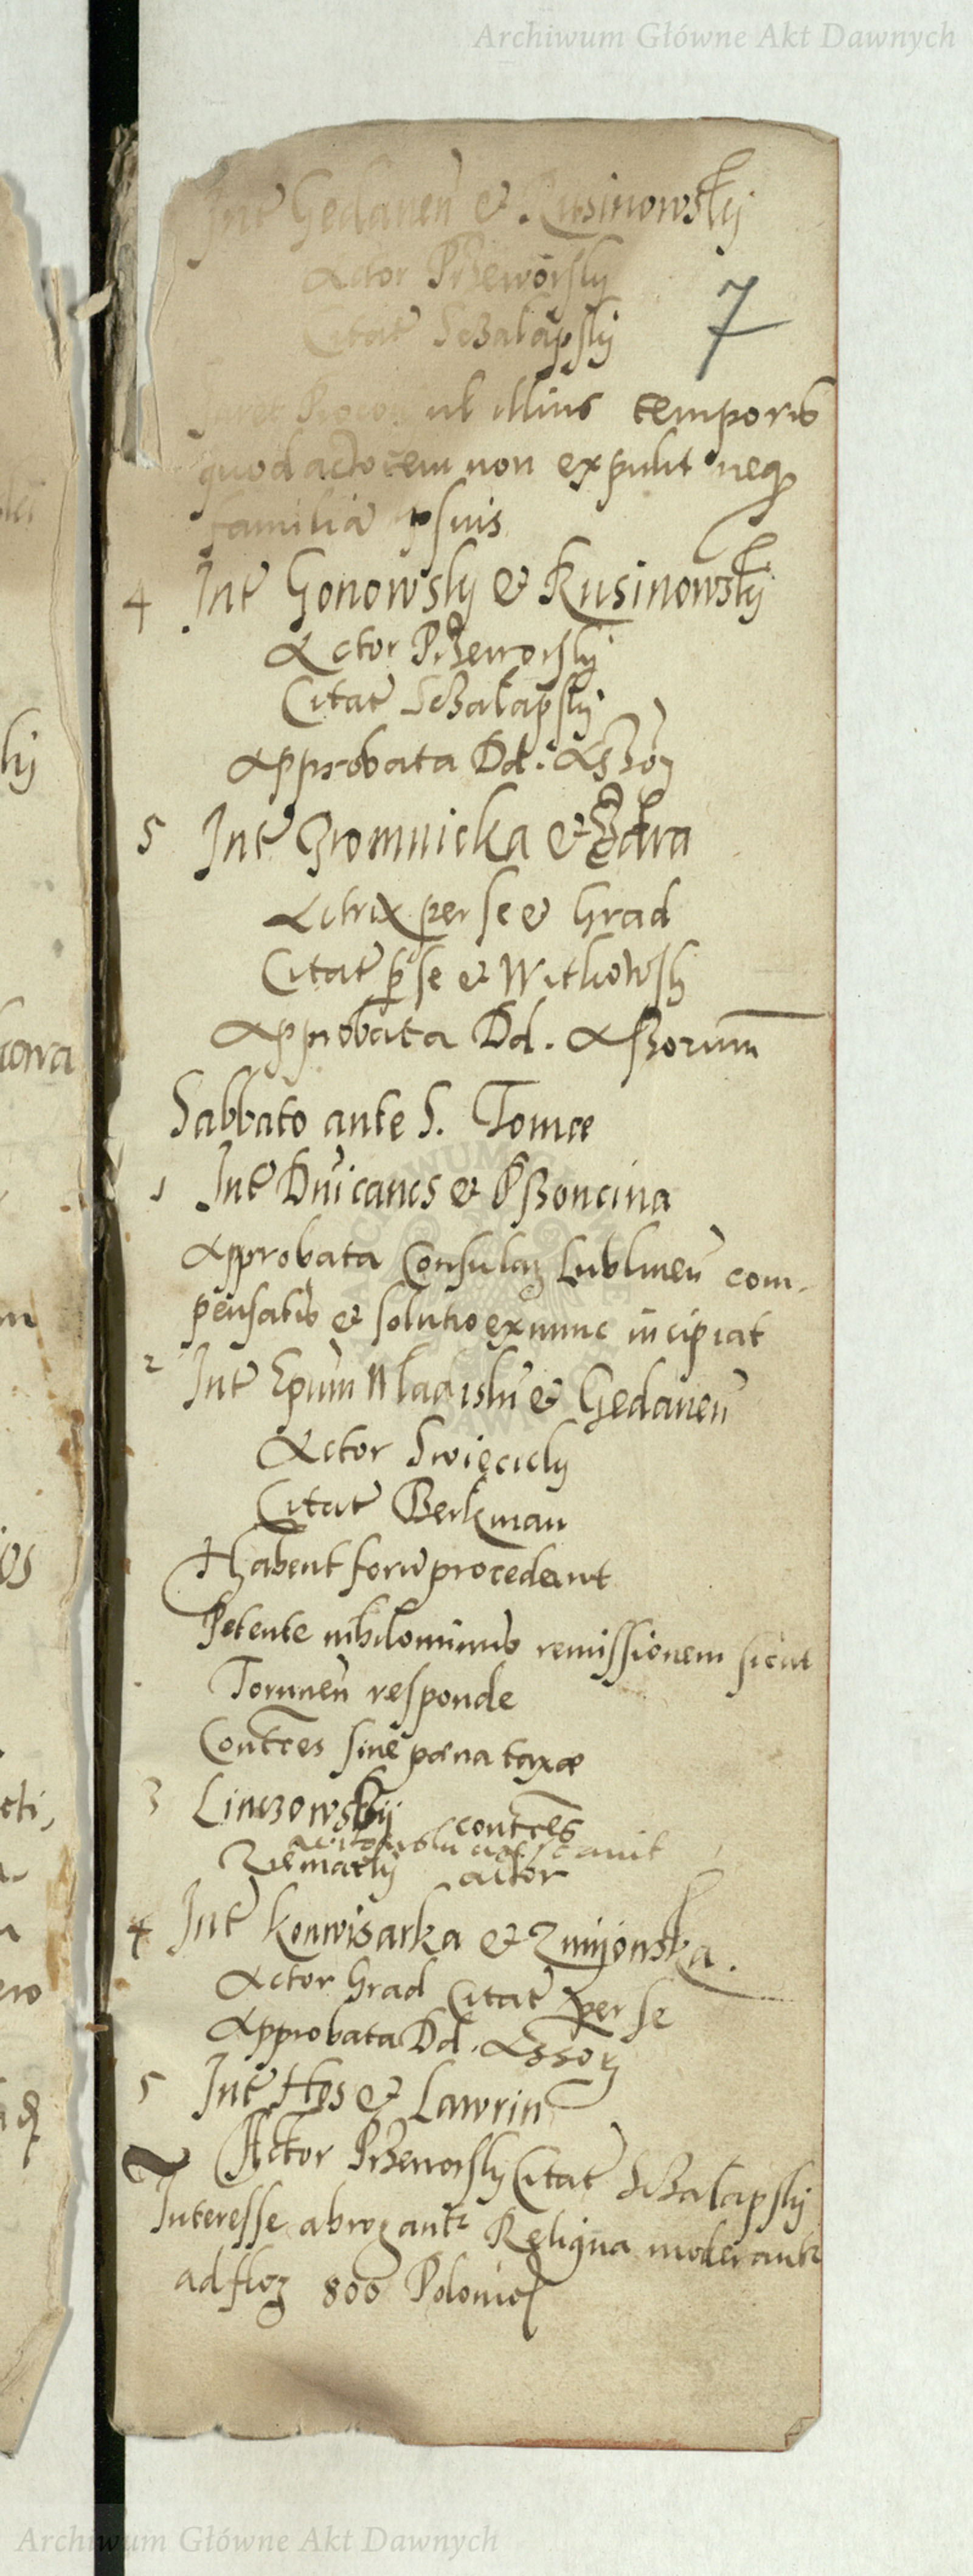 Archiwum Główne Akt Dawnych
Int Gedanen et Rusinowskij
Actor Przeworsky
Citat Sczalapsky
7
ut illius temporis
quod actorem non expulit neq
familia ipsius
4 Int Gonowsky et Rusinowskij
Actor Przeworsky
Citat Sczalapsky
Approbata Dd. Assor
5 Int Gromnicka et
Actrix per se et Grad
Citat per se et Witkowsk
Approbata Dd. Assorum
Sabbato ante S. Tomæ
1 Int Dnicanos et Pszoncina
Approbata Consulum Lublinen com-
pensatis et solutio ex nunc incipiat
2 Int Epum Wladislu et Gedanen
Actor Swięcicky
Citat Berkman
Habent foru procedant
Petente nihilominus remissionem sicut
Torunen responde
Contres sine pœna taxæ
3 Linczowskij contres
Ziemacky actor
4 Int Konwisarka et Zmijowska.
Actor Grad Citat per se
Approbata Dd. Assor
5 Int Hos et Lawrin
Actor Przeworsky Citat Sczalapsky
Interesse abrogant Reliqua moderant
ad floz 800 Polonical
Archiwum Główne Akt Dawnych